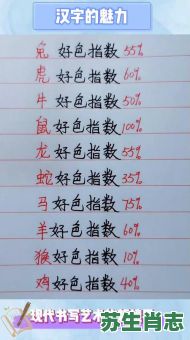 汉字的魅力
兔好色指数55%
虎好色指数60%
牛好色指数50%
鼠好色指数100%
龙好色指数55%
蛇好色指数35%
马好色指数75%
羊好色指数60%
猴好色指数10%
鸡好色指数40%
现代书写艺术
苏生肖志